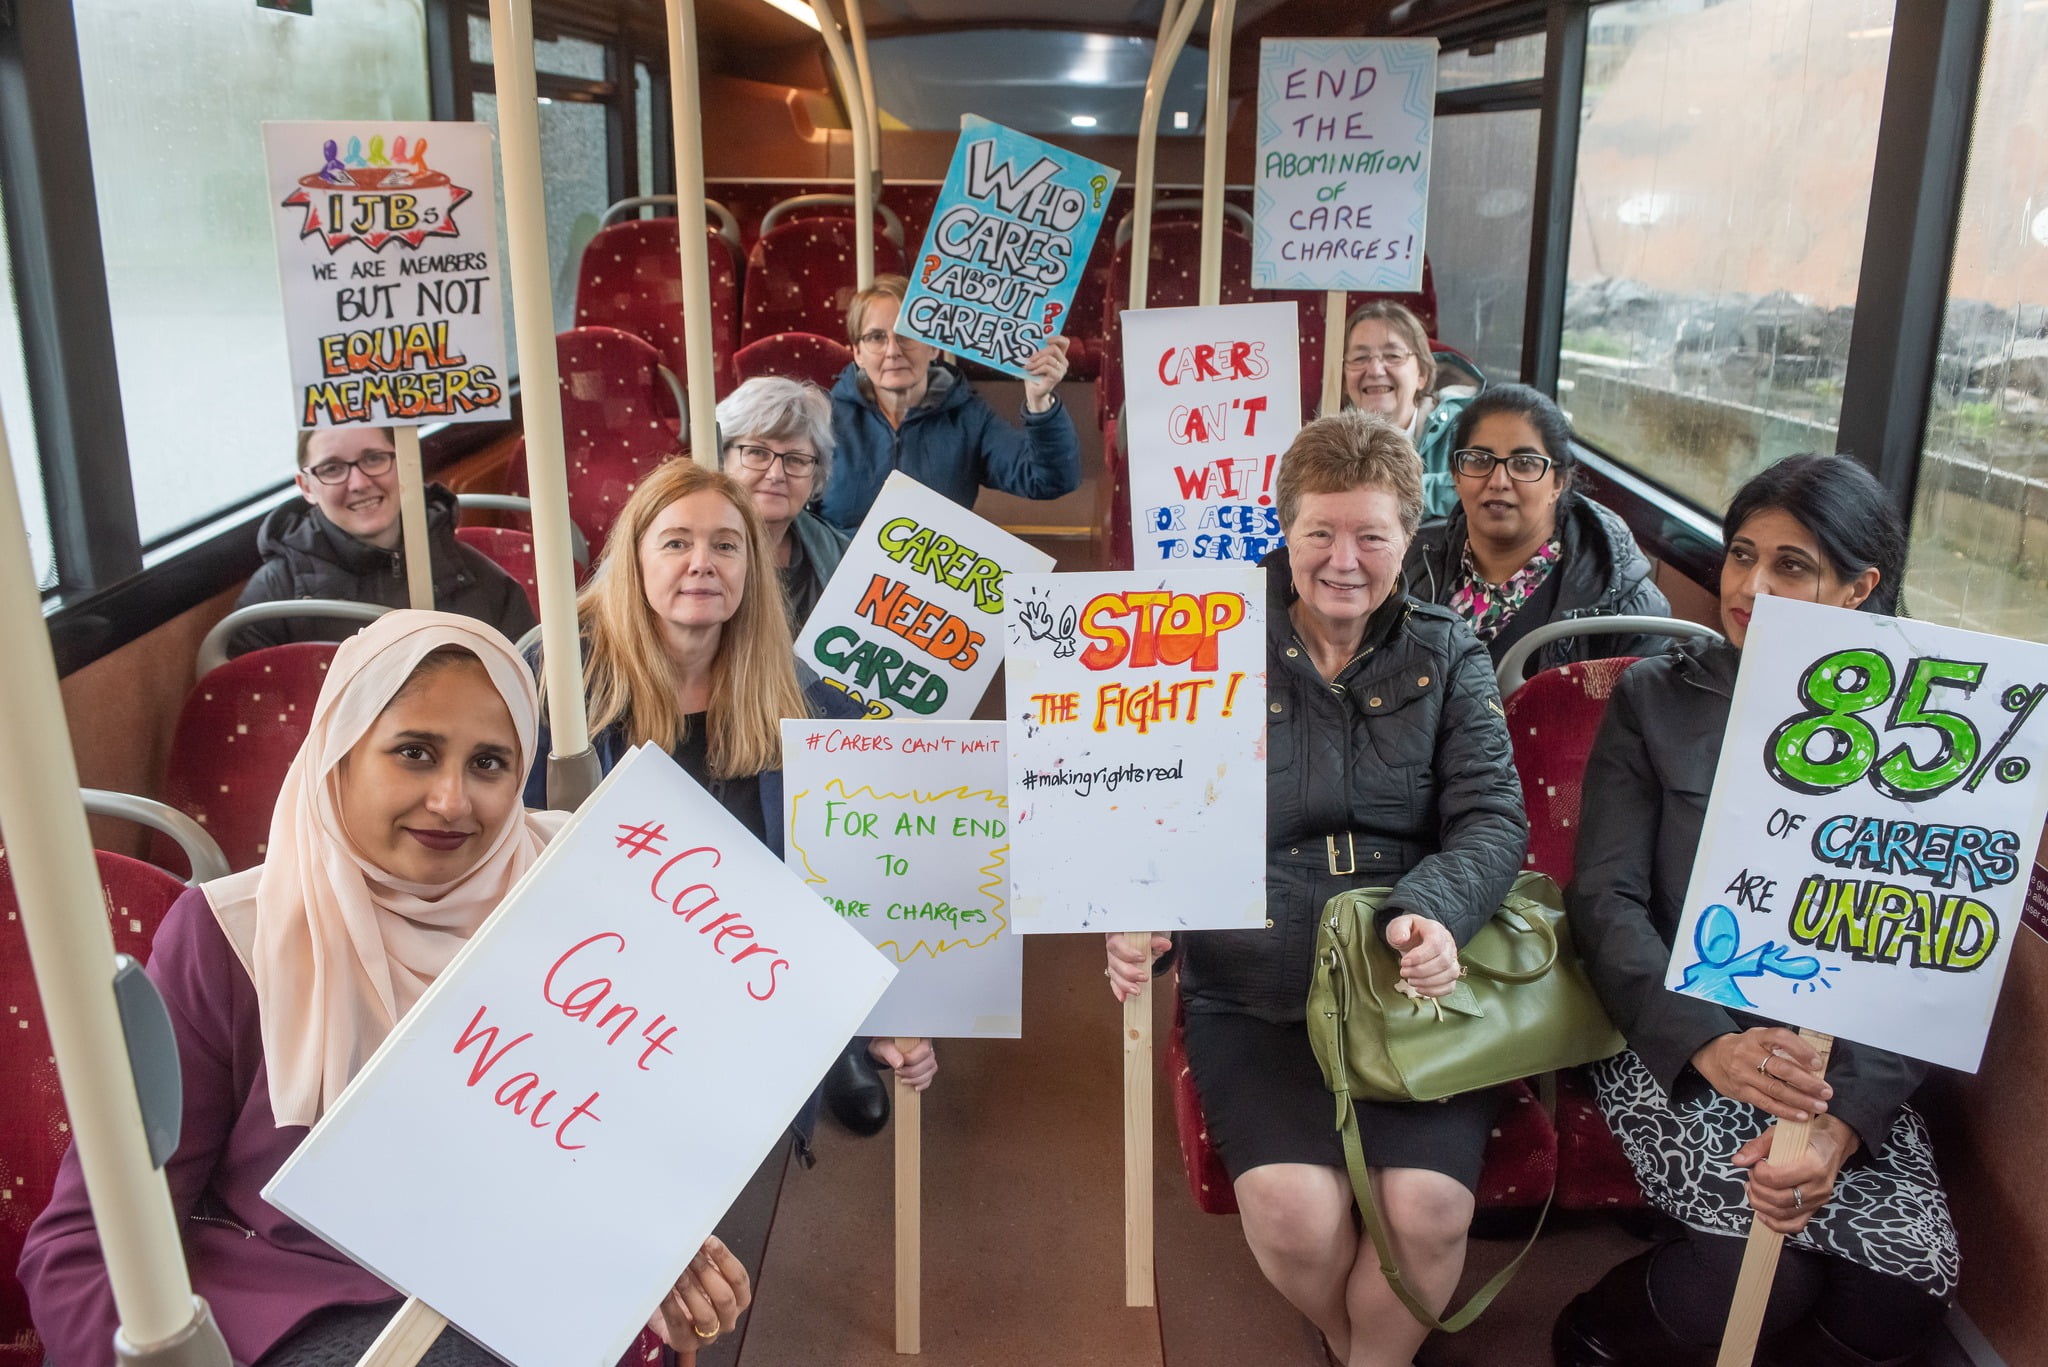 IJBs
WE ARE MEMBERS
BUT NOT
EQUAL
MEMBERS
WHO
CARES
ABOUT
CARERS
???
END
THE
ABOMINATION
OF
CARE
CHARGES!
CARERS
CAN'T
WAIT!
FOR ACCESS
TO SERVICE
CARERS
NEEDS
CARED
FOR
STOP
THE FIGHT!
#makingrightsreal
#CARERS CAN'T WAIT
FOR AN END
TO
CARE CHARGES
#Carers
Can't
Wait
85%
OF CARERS
ARE UNPAID